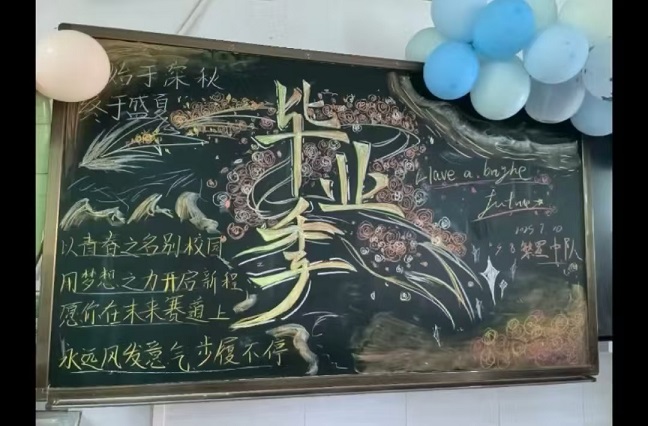 始于深秋
终于盛夏
毕业季
以青春之名别校园
用梦想之力开启新程
愿你在未来赛道上
永远风发意气步履不停
Have a brighe
future
中队